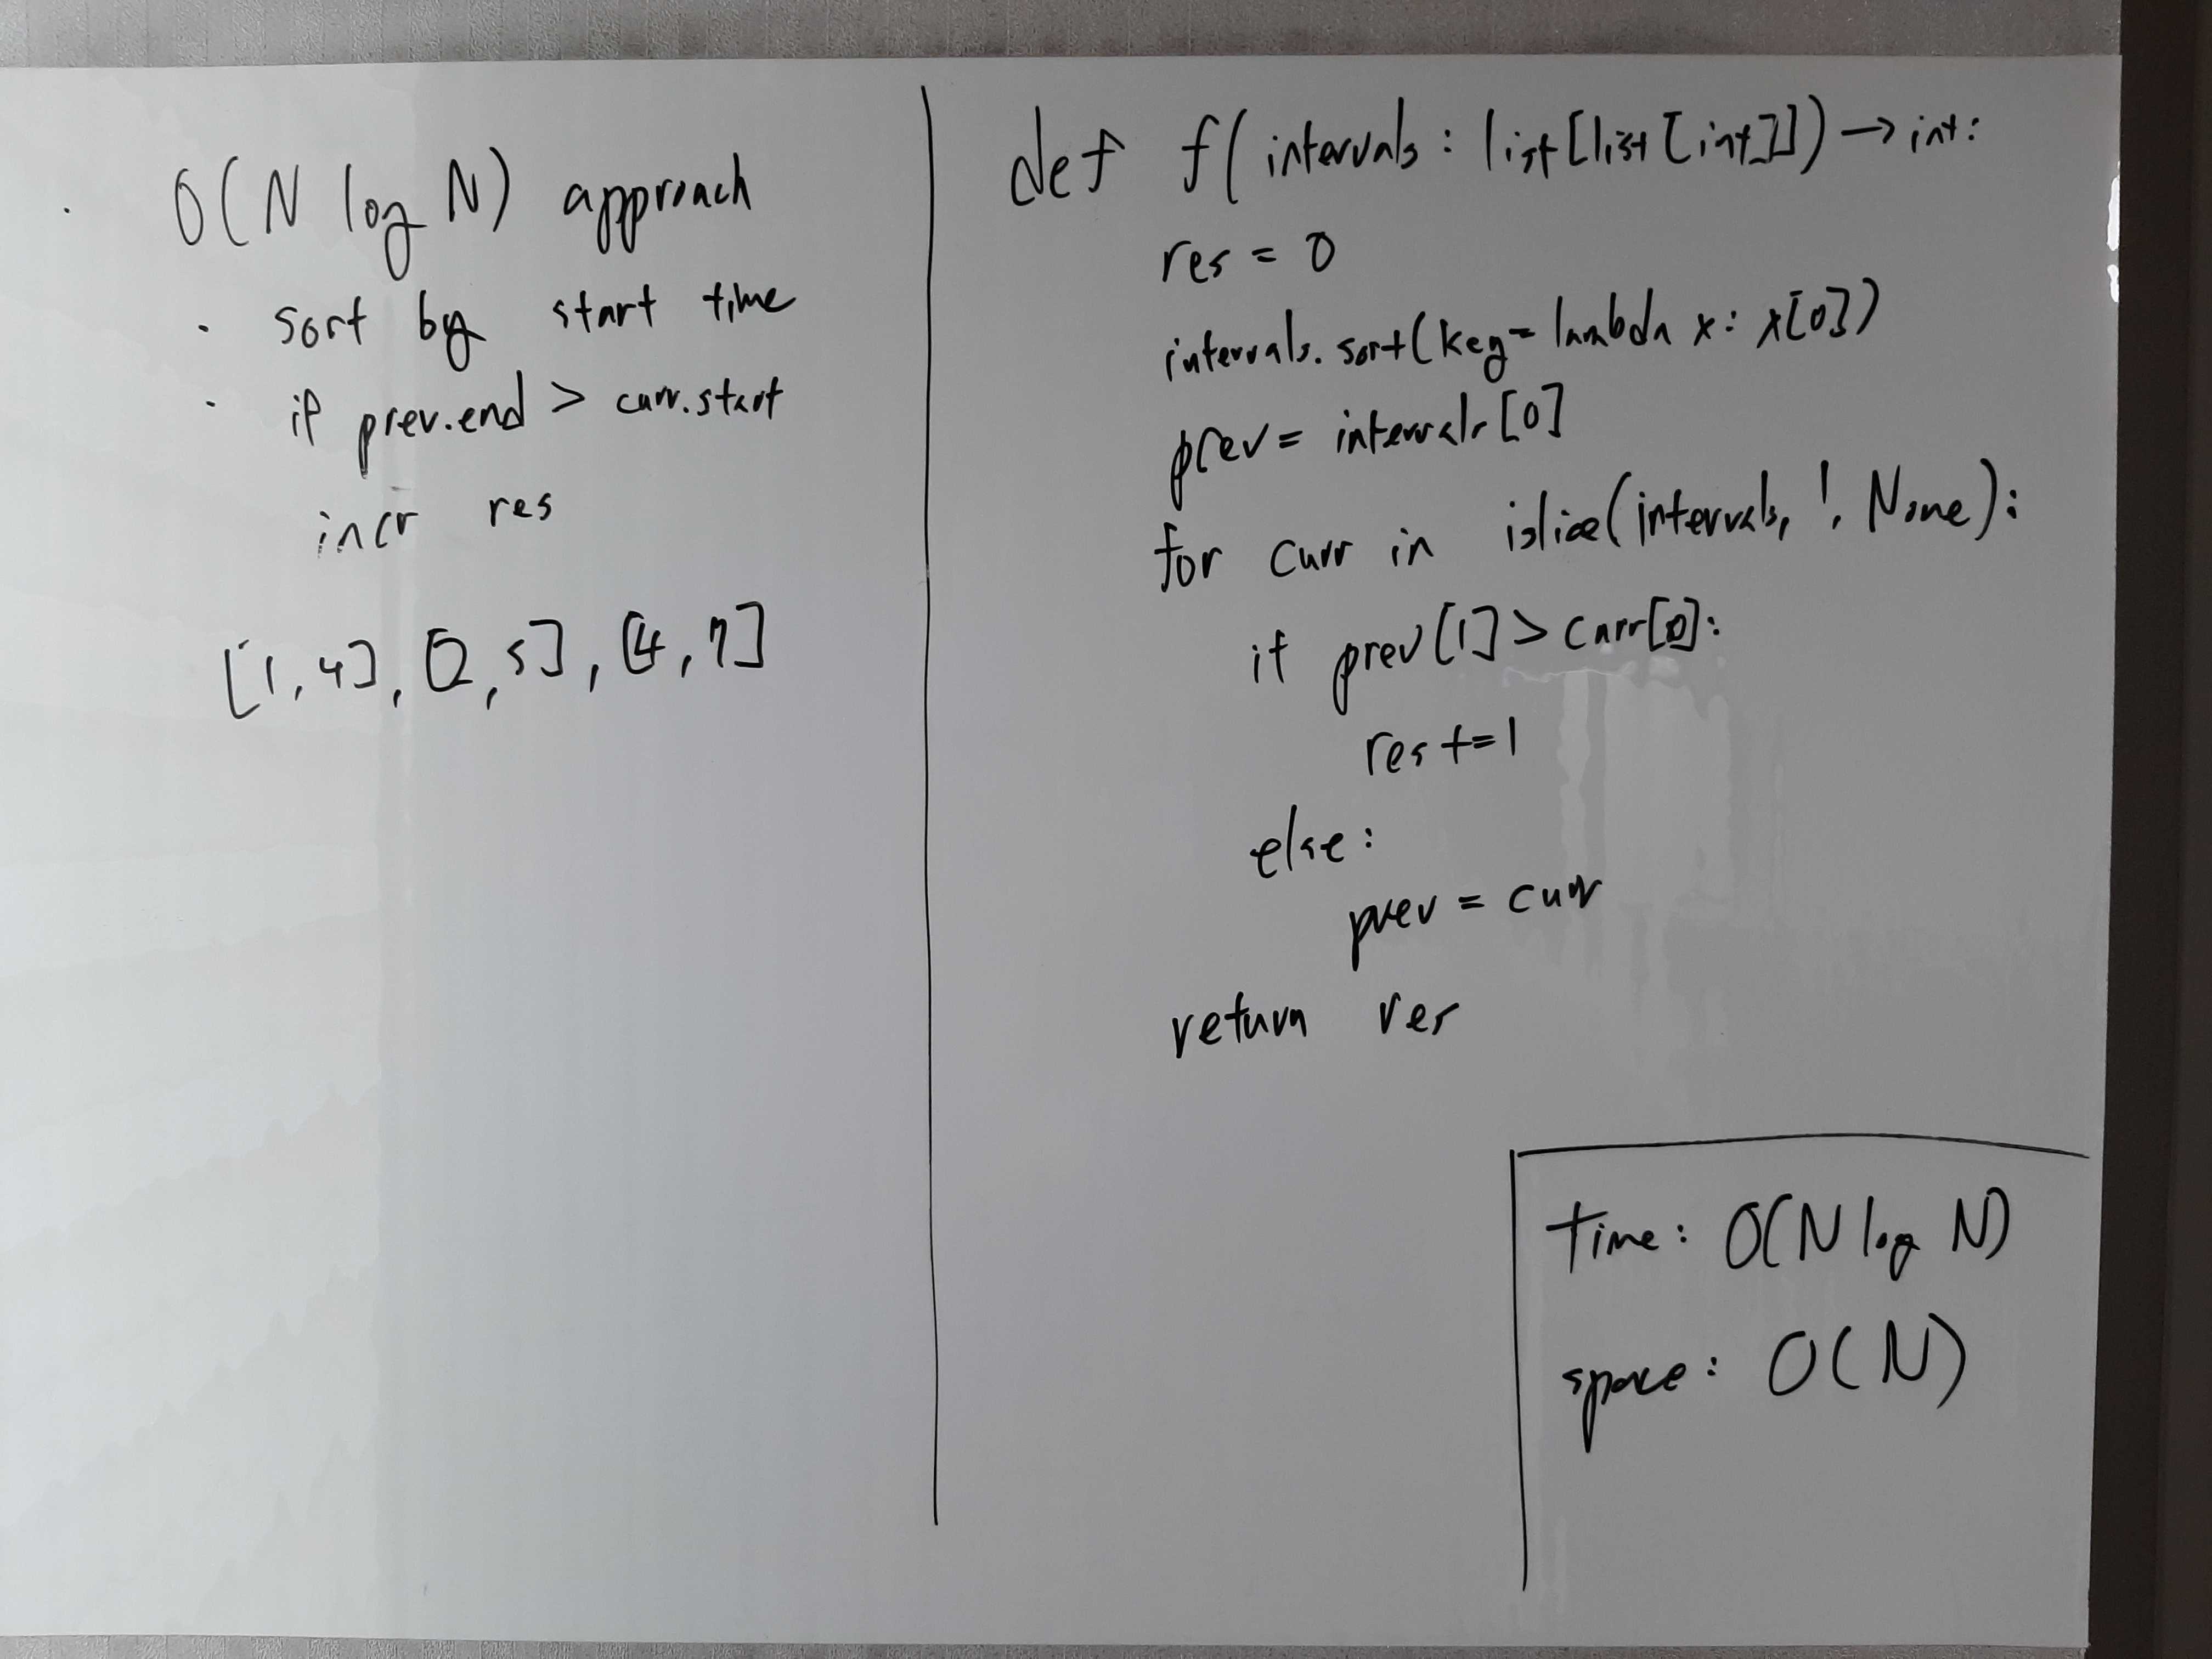 O(N log N) approach
· sort by start time
· if prev.end > curr.start
incr res
[1,4], [2,5], [4,7]
def f(intervals: list[list[int]]) → int:
res = 0
intervals.sort(key=lambda x: x[0])
prev = intervals[0]
for curr in islice(intervals, 1, None):
if prev[1] > curr[0]:
res += 1
else:
prev = curr
return res
time: O(N log N)
space: O(N)